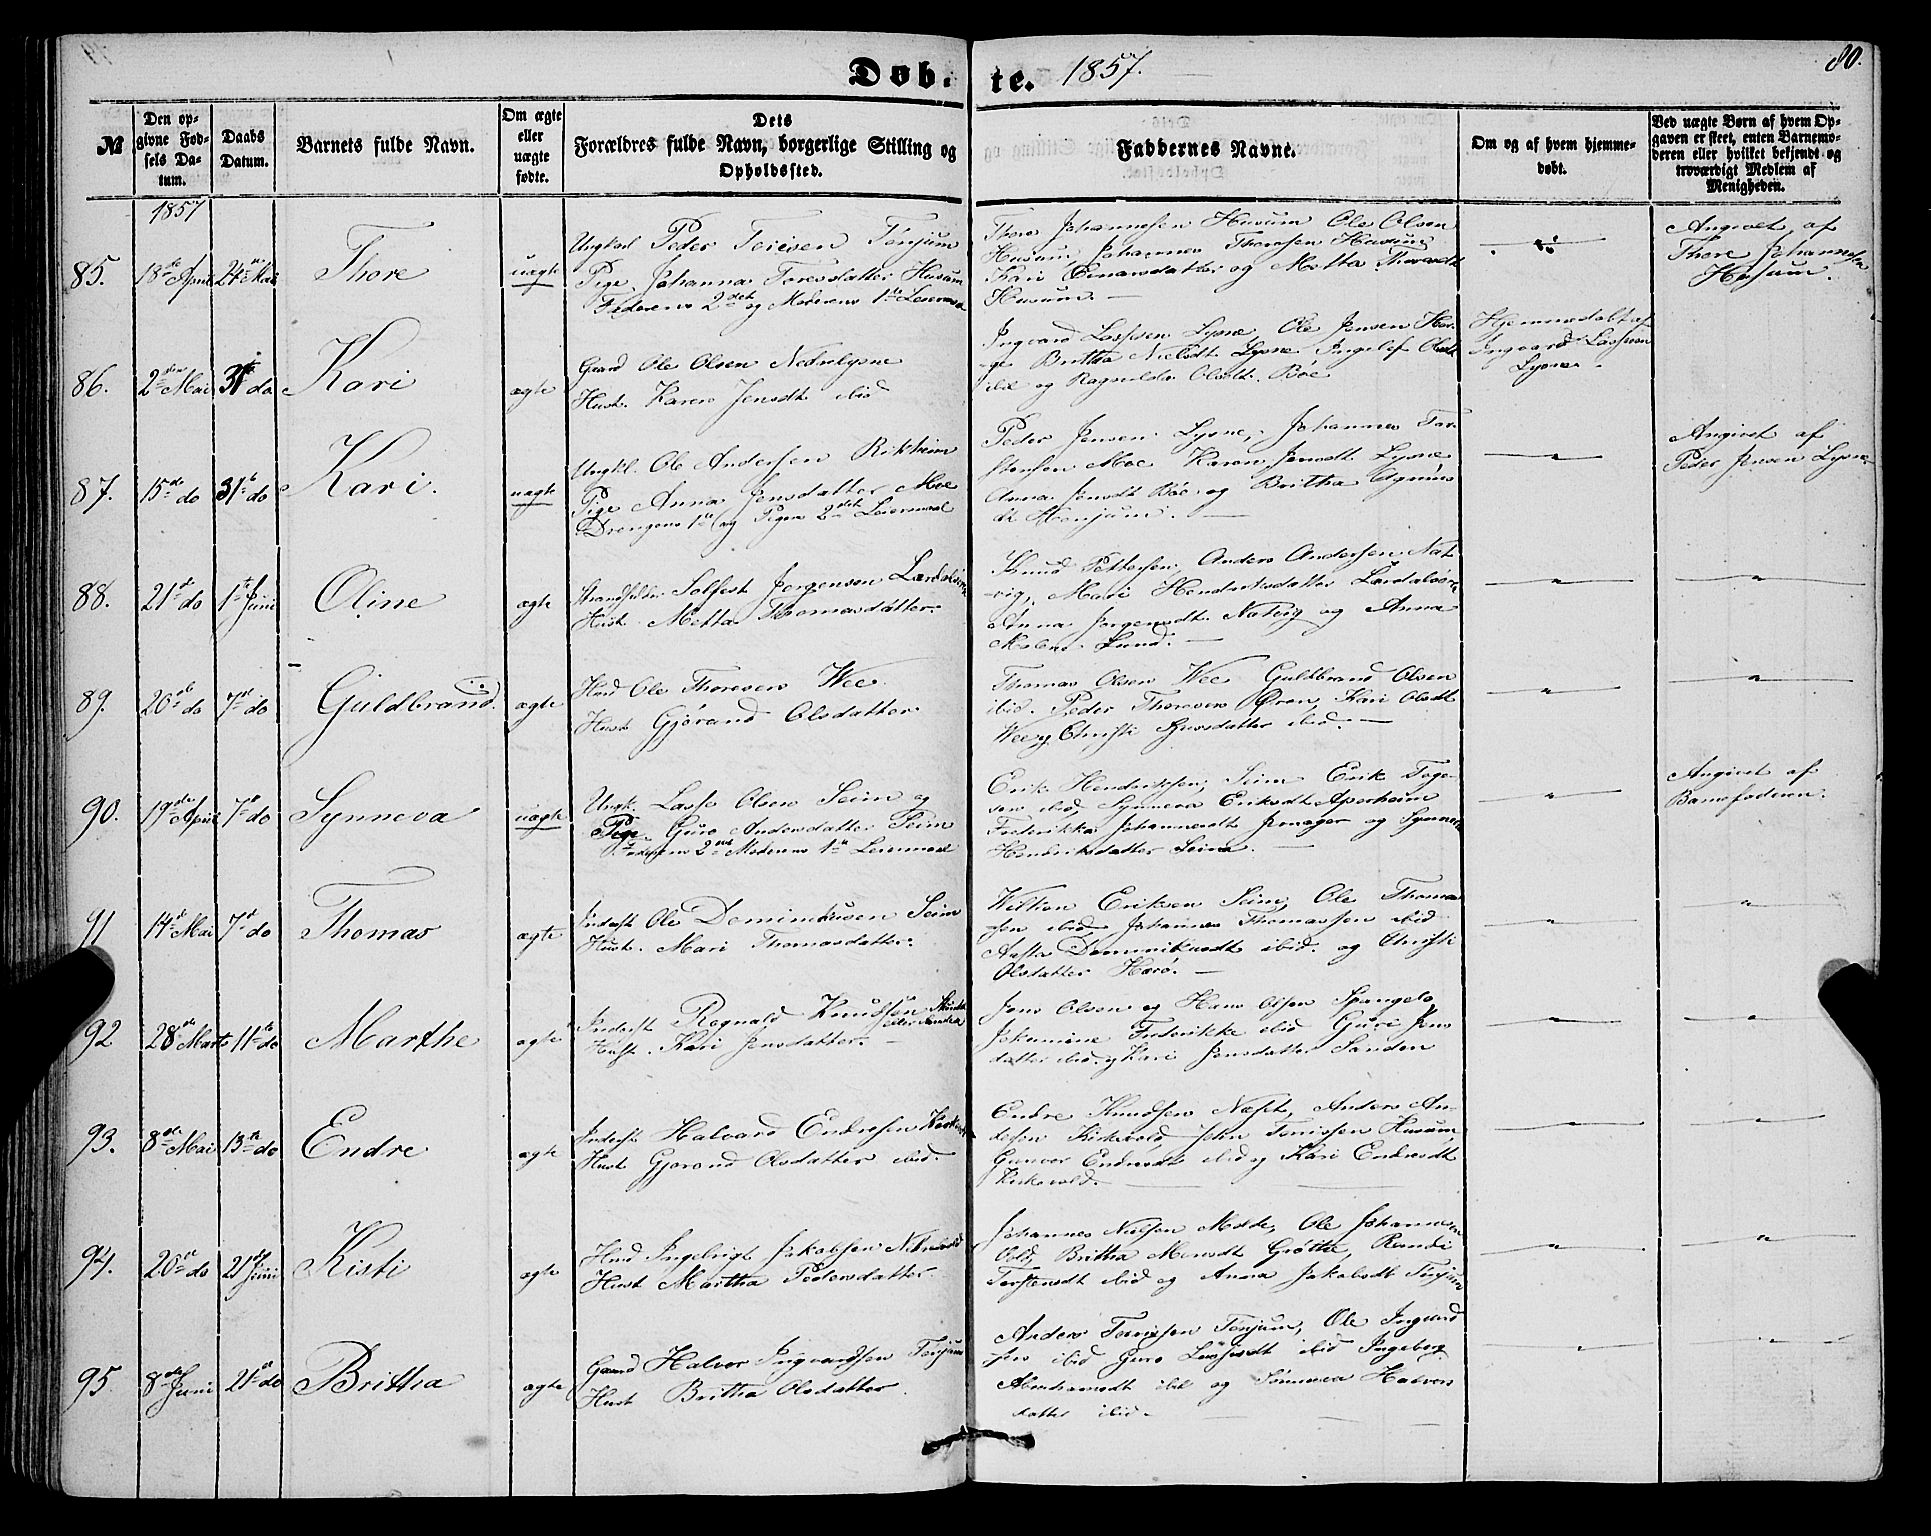 Døb.
te. 1857.
80.
№
Den op-
givne Fød-
sels Da-
tum.
Daabs
Datum.
Barnets fulde Navn.
Om ægte
eller
uægte
fødte.
Dets
Forældres fulde Navn, borgerlige Stilling og
Opholdssted.
Faddernes Navne.
Om og af hvem hjemme-
døbt.
Ved uægte Børn af hvem Op-
gaven er skeet, enten Barnemo-
deren eller hvilket bekjendt og
troværdigt Medlem af
Menigheden.
1857
85. 18de April 24de Mai Thore uægte
Ungkarl Peder Teiesen Tønjum
Pige Johanna Toresdatter Husum
Faderens 2det og Moderens 1te Leiermaal
Thore Johannesen Husum Ole Olsen
Husum Johannes Thoresen Husum
Kari Einarsdatter og Metta Thoresdt
Husum.
Angivet af
Thore Johannesen
Husum.
86. 2den Mai 31te do Kari ægte
Gaard Ole Olsen Nedrelysne
Hust. Karen Jensdt ibid
Ingvard Lassesen Lysne Ole Jensen Hau-
ge Brittha Nielsdt Lysne Ingelef Olsdt
ibid og Ragnilda Olsdt. Bøe
Hjemmedøbt af
Ingvard Lassesen
Lysne.
87. 15de do 31te do Kari. uægte
Ungkl. Ole Andersen Rikheim
Pige Anna Jensdatter Moe
Drengens 1te og Pigens 2det Leiermaal
Peder Jensen Lysne, Johannes Tor-
stensen Moe Karen Jensdt Lysne
Anna Jensdt Bøe og Brittha
dt Honjum.
Angivet af
Peder Jensen Lysne
88. 21de do 1te Juni Oline ægte
Strandsidder Solfest Jørgensen Lærdalsøren
Hust. Metta Thomasdatter.
Knud Pettersen, Anders Andersen Nat-
vig, Mari Hendriksdatter Lærdalsøren
Anna Jørgensdt. Natvig og Anna
Malene Lund.
89. 20de do 7de do Guldbrand. ægte
Hmd Ole Thoresen Wee.
Hust Gjørand Olsdatter
Thomas Olsen Wee Guldbrand Olsen
ibid. Peder Thoresen Øren, Kari Olsdt
Wee og Christi Sjursdatter ibid.
90. 19de April 7de do Synneva uægte
Ungk. Lasse Olsen Seim og
Pige Guro Andersdatter Seim
Faderens 2det Moderens 1te Leiermaal
Erik Hendriksen, Seim Erik Toge-
sen ibid Synneva Eriksdt Asperheim
Frederikka Johannesdt Jernager og Synneva
Hendriksdatter Seim.
Angivet af
Barnefaderen.
91 14de Mai 7de do Thomas ægte
Inderst Ole Deminikusen Seim
Hust. Mari Thomasdatter.
Willken Eriksen Seim, Ole Thoma-
sen ibid Johannes Thomassen ibid
Aasta Deminikusdt ibid. og Christi
Olsdatter Harø.
92 28de Marts 11te do Marthe ægte
Inderst Ragnald Knudsen
Hust. Kari Jensdatter.
Jens Olsen og Hans Olsen Spangelo
Johannine Frederikke ibid Guri Jens-
datter ibid. og Kari Jensdatter Sanden
93. 8de Mai 13te do Endre ægte
Inderst Halvard Endresen Kirkevold
Hust Gjørand Olsdatter ibid.
Endre Knudsen Næset, Anders An-
dersen Kirkevold, John Tønissen Husum,
Gunvor Endresdt ibid og Kari Endresdt
Kirkevold.
94. 20de do 21de Juni Kisti ægte
Hmd Ingebrigt Jakobsen
Hust Martha Pedersdatter.
Johannes Nielsen Molde, Ole Johannesen
Vold, Brittha Monsdt Grøtta, Randi
Torstensdt ibid og Anna Jakobsdt Tønjum
95. 8de Juni 21de do Brittha ægte
Gaard Halvor Ingvardsen Tønjum
Hust Brittha Olsdatter.
Anders Tørrissen Tønjum, Ole Ingvard-
sen ibid Guro Lassesdt ibid Ingeborg
Abrahamsdt ibid og Sønneva Halvors-
datter ibid.